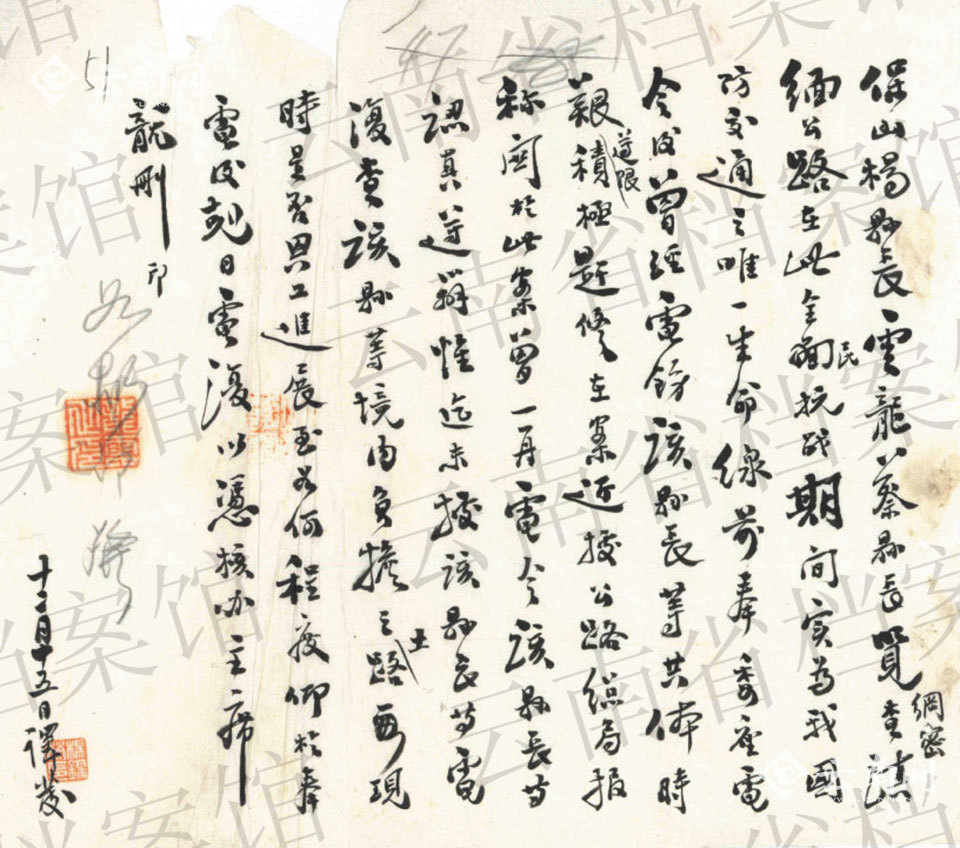 保山楊縣長雲龍蔡縣長覽綢密查滇
緬公路在此全面民抗战期间实为我國
防交通之唯一生命線前奉委座電
令後曾經電飭該縣長等共体時
艱積極趕修遵限在案近據公路總局报
称関於此案曾一再電令該縣長等
認真遵辦惟迄未據該縣長等電
復查該縣等境内負擔之路土要現
時是否興工進展至若何程度仰於奉
電後剋日電復以憑核办主席
龍刪印
十二月十五日譯發
51
47
云南省档案馆
云南网